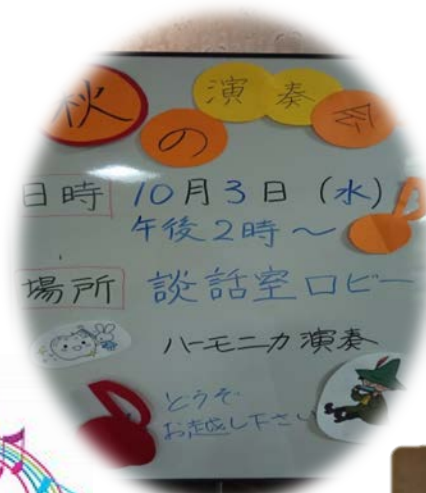 秋の演奏会
日時 10月3日(水)
午後2時~
場所 談話室ロビー
ハーモニカ演奏
どうぞ
お越し下さい